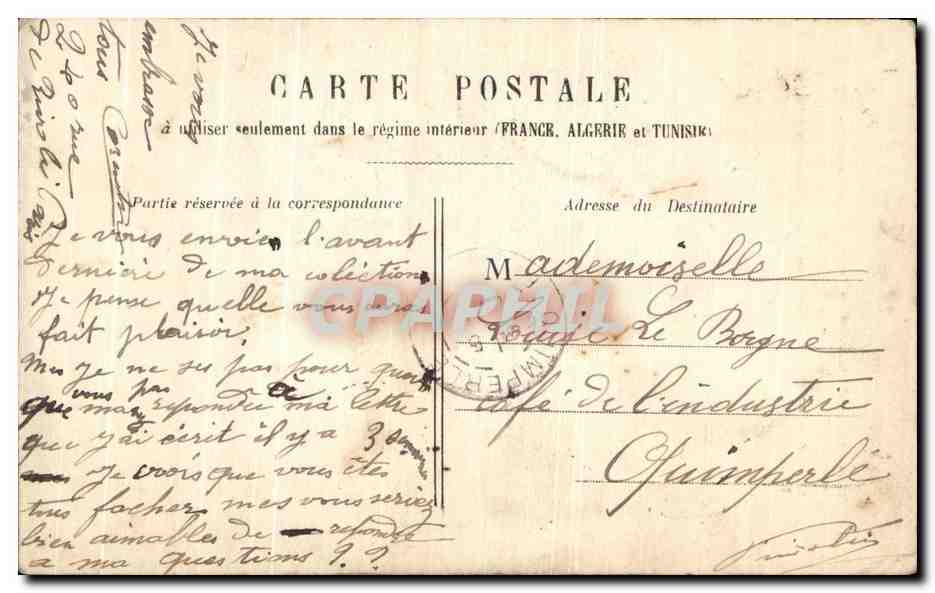 CARTE POSTALE
à utiliser seulement dans le régime intérieur (FRANCE, ALGERIE et TUNISIE)
Partie réservée à la correspondance
Adresse du Destinataire
Je vous envoies l'avant
dernière de ma coléction
Je pense quelle vous
fait plaisir,
Mes Je ne ses pas pour quoi
que vous pas repondu à ma lettre
que j'ai écrit il y a 3
Je crois que vous êtes
tous facher mes vous seriez
bien aimables de repondre
a ma questions ? ?
Je vous
embrasse
tous
240 rue
de
Mademoiselle
Louise Le Borgne
café de l'industrie
Quimperlé
CPAPHIL